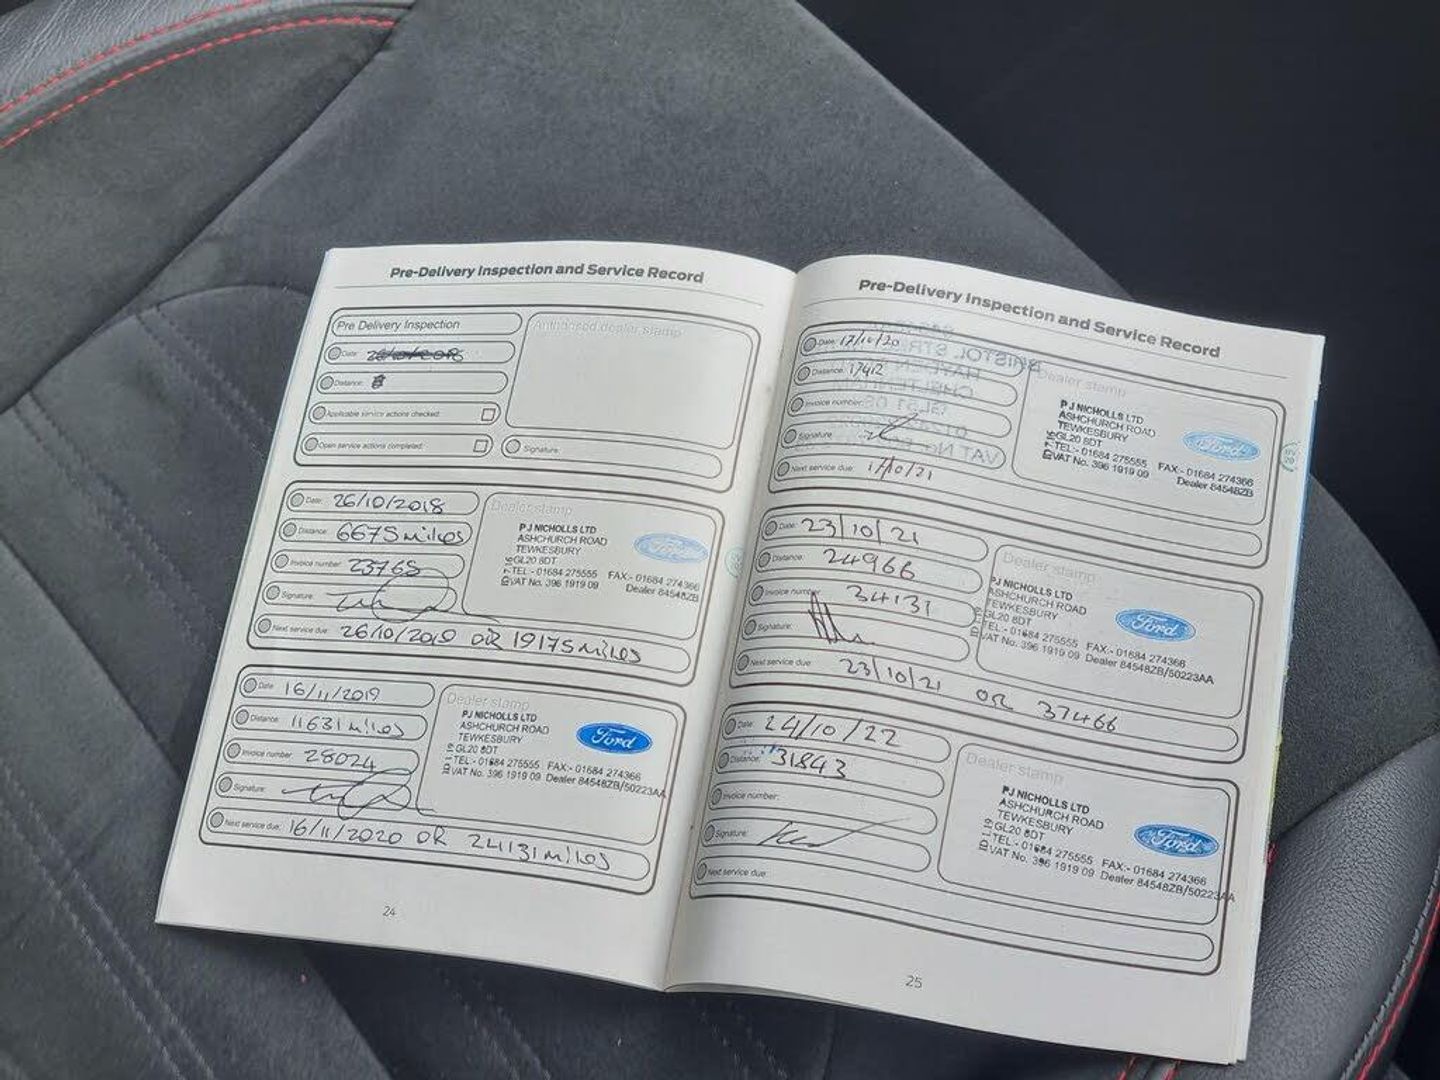 Pre-Delivery Inspection and Service Record
Pre Delivery Inspection
Date:
Distance:
Applicable service actions checked:
Open service actions completed:
Authorised dealer stamp
Signature:
Date: 26/10/2018
Distance: 6675 miles
Invoice number: 23765
Signature:
Next service due: 26/10/2019 OR 19175 miles
Dealer stamp
P J NICHOLLS LTD
ASHCHURCH ROAD
TEWKESBURY
GL20 8DT
TEL:- 01684 275555 FAX:- 01684 274366
VAT No. 396 1919 09 Dealer 84548ZB
Ford
Date: 16/11/2019
Distance: 11631 miles
Invoice number: 28024
Signature:
Next service due: 16/11/2020 OR 24131 miles
Dealer stamp
PJ NICHOLLS LTD
ASHCHURCH ROAD
TEWKESBURY
GL20 8DT
TEL:- 01684 275555 FAX:- 01684 274366
VAT No. 396 1919 09 Dealer 84548ZB/50223AA
Ford
24
Pre-Delivery Inspection and Service Record
Date: 17/10/20
Distance: 17412
Invoice number:
Signature:
Next service due: 17/10/21
Dealer stamp
P J NICHOLLS LTD
ASHCHURCH ROAD
TEWKESBURY
GL20 8DT
TEL:- 01684 275555 FAX:- 01684 274366
VAT No. 396 1919 09 Dealer 84548ZB
Ford
Date: 23/10/21
Distance: 24966
Invoice number: 34131
Signature:
Next service due: 23/10/21 OR 37466
Dealer stamp
PJ NICHOLLS LTD
ASHCHURCH ROAD
TEWKESBURY
GL20 8DT
TEL:- 01684 275555 FAX:- 01684 274366
VAT No. 396 1919 09 Dealer 84548ZB/50223AA
Ford
Date: 24/10/22
Distance: 31843
Invoice number:
Signature:
Next service due:
Dealer stamp
PJ NICHOLLS LTD
ASHCHURCH ROAD
TEWKESBURY
GL20 8DT
TEL:- 01684 275555 FAX:- 01684 274366
VAT No. 396 1919 09 Dealer 84548ZB/50223AA
Ford
25